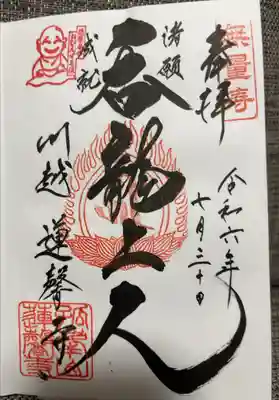 奉拝
無量寿
令和六年
十月三十日
諸願
成就
呑龍上人
川越 蓮馨寺
蓮馨寺